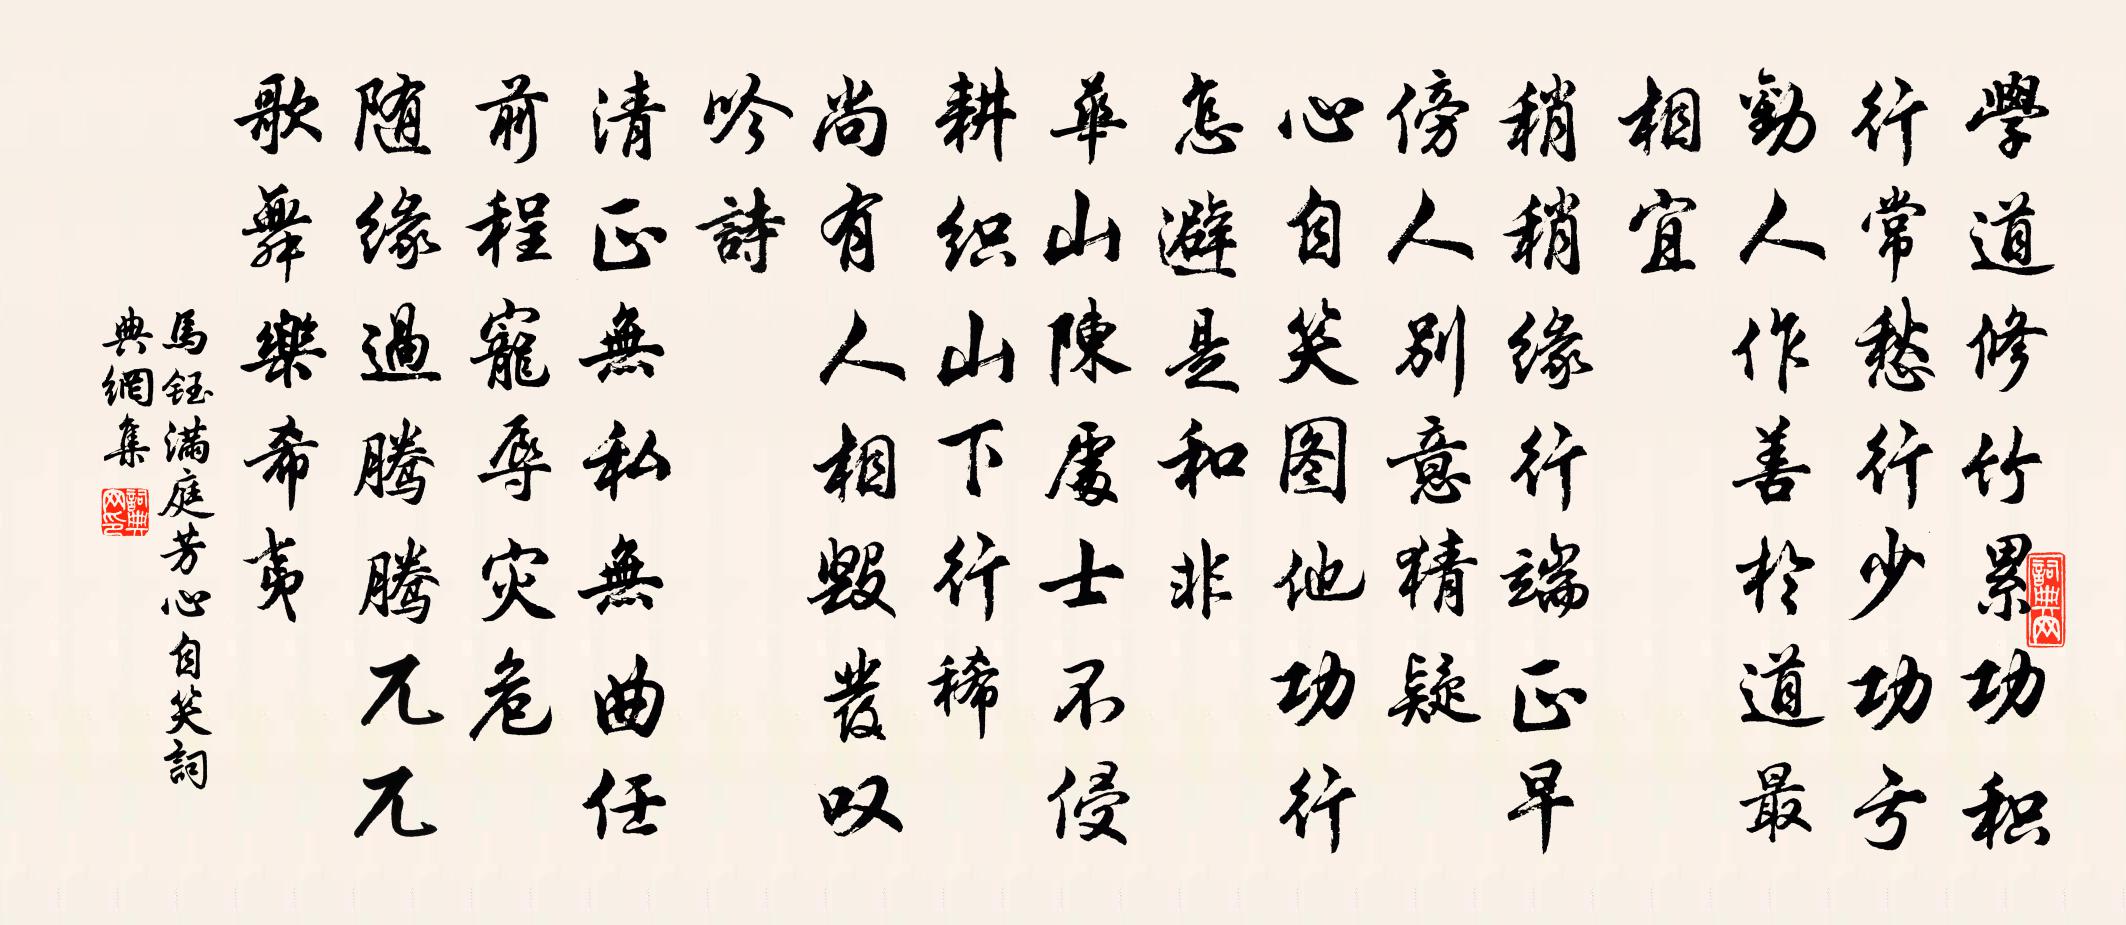 學道修竹累功积
行常愁行少功亏
勸人作善於道最
相宜
稍稍缘行端正早
傍人别意猜疑
心自笑图他功行
怎避是和非
華山陳處士不侵
耕织山下行稀
尚有人相毁發叹
吟詩
清正無私無曲任
前程寵辱灾危
随缘過腾腾兀兀
歌舞樂希夷
馬钰满庭芳心自笑詞
典網集
詞典网
詞典网印